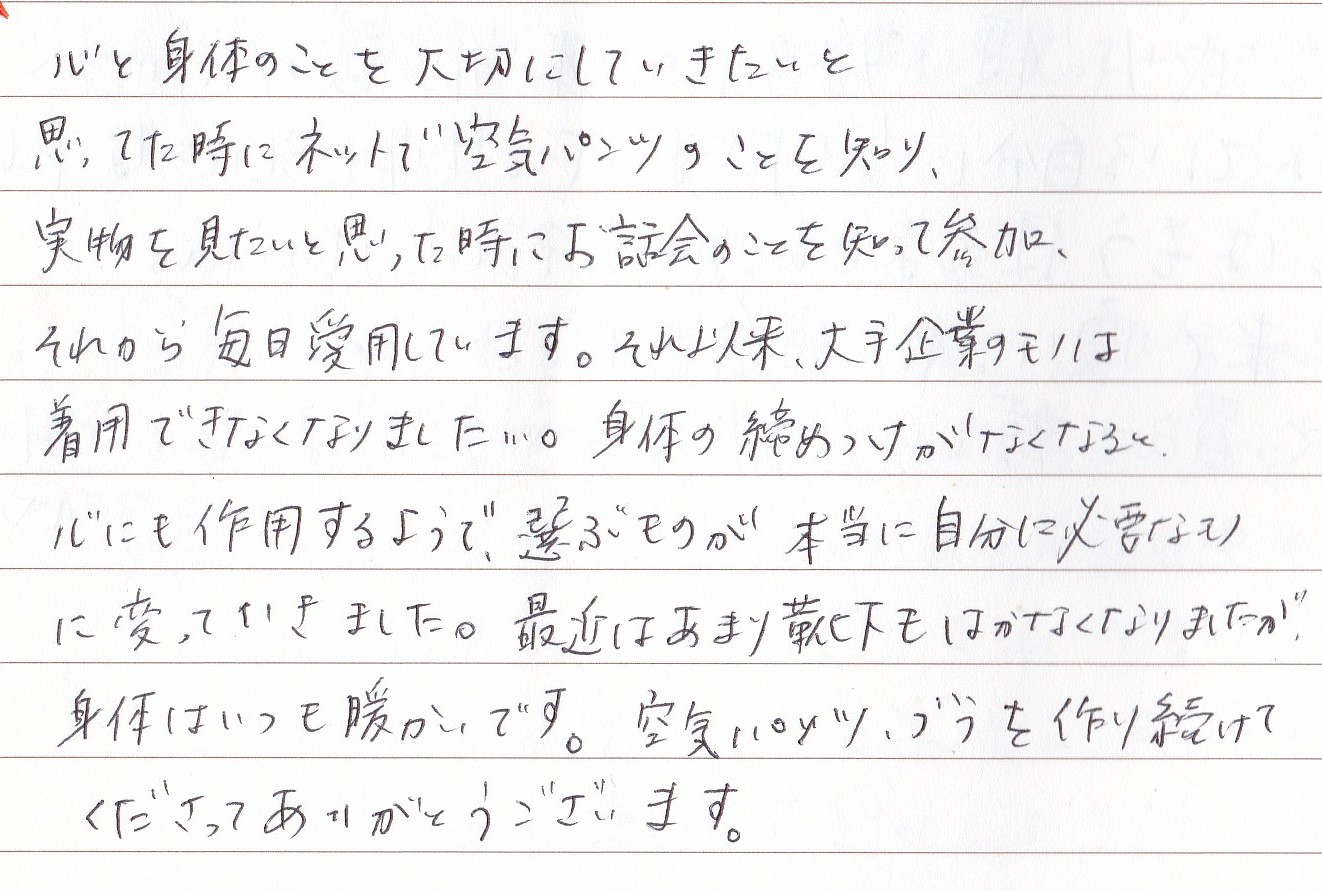 心と身体のことを大切にしていきたいと
思ってた時にネットで空気パンツのことを知り、
実物を見たいと思った時にお話会のことを知って参加、
それから毎日愛用しています。それ以来、大手企業のモノは
着用できなくなりました…。身体の締めつけがなくなると、
心にも作用するようで、選ぶものが本当に自分に必要なモノ
に変っていきました。最近はあまり靴下もはかなくなりましたが、
身体はいつも暖かいです。空気パンツ、ブラを作り続けて
くださってありがとうございます。